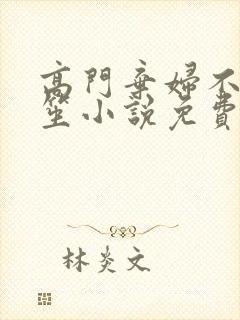 高門棄婦不
笙小說免費
林炎文